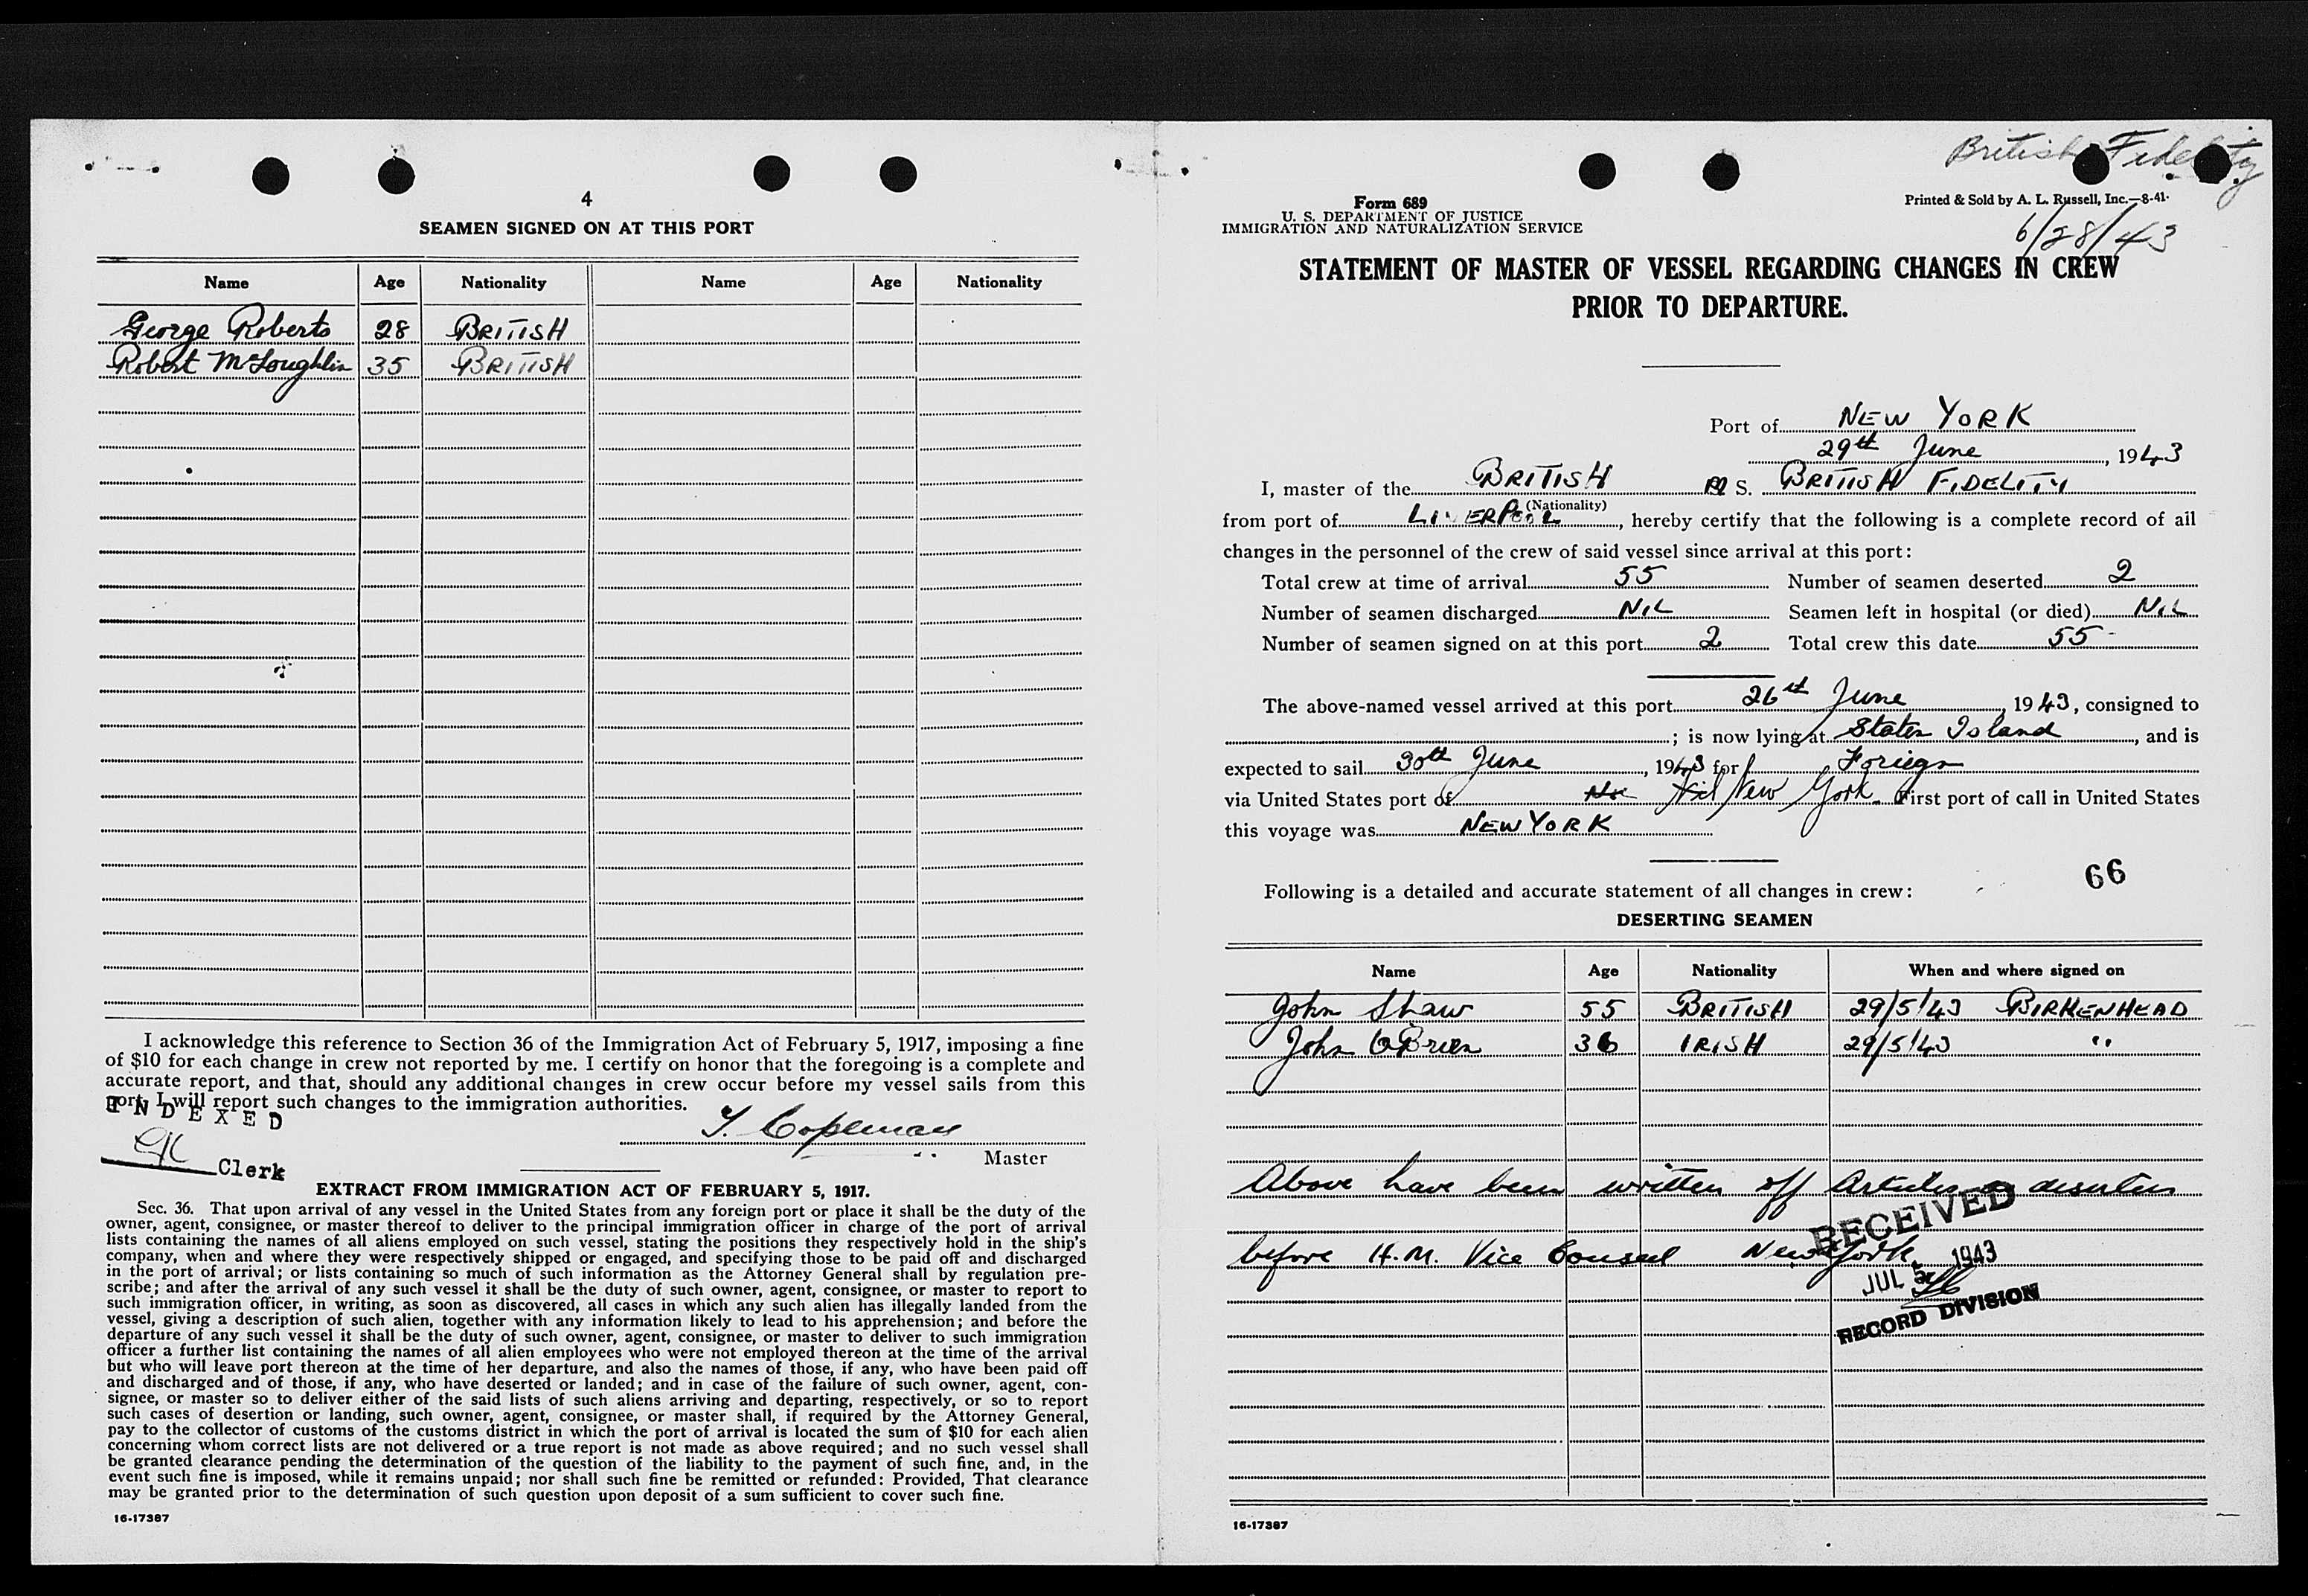 4
SEAMEN SIGNED ON AT THIS PORT
Name Age Nationality Name Age Nationality
George Roberts 28 BRITISH
Robert McLoughlin 35 BRITISH
I acknowledge this reference to Section 36 of the Immigration Act of February 5, 1917, imposing a fine
of $10 for each change in crew not reported by me. I certify on honor that the foregoing is a complete and
accurate report, and that, should any additional changes in crew occur before my vessel sails from this
port, I will report such changes to the immigration authorities.
INDEXED
Copeman
Master
Clerk
EXTRACT FROM IMMIGRATION ACT OF FEBRUARY 5, 1917.
Sec. 36. That upon arrival of any vessel in the United States from any foreign port or place it shall be the duty of the
owner, agent, consignee, or master thereof to deliver to the principal immigration officer in charge of the port of arrival
lists containing the names of all aliens employed on such vessel, stating the positions they respectively hold in the ship's
company, when and where they were respectively shipped or engaged, and specifying those to be paid off and discharged
in the port of arrival; or lists containing so much of such information as the Attorney General shall by regulation pre-
scribe; and after the arrival of any such vessel it shall be the duty of such owner, agent, consignee, or master to report to
such immigration officer, in writing, as soon as discovered, all cases in which any such alien has illegally landed from the
vessel, giving a description of such alien, together with any information likely to lead to his apprehension; and before the
departure of any such vessel it shall be the duty of such owner, agent, consignee, or master to deliver to such immigration
officer a further list containing the names of all alien employees who were not employed thereon at the time of the arrival
but who will leave port thereon at the time of her departure, and also the names of those, if any, who have been paid off
and discharged and of those, if any, who have deserted or landed; and in case of the failure of such owner, agent, con-
signee, or master so to deliver either of the said lists of such aliens arriving and departing, respectively, or so to report
such cases of desertion or landing, such owner, agent, consignee, or master shall, if required by the Attorney General,
pay to the collector of customs of the customs district in which the port of arrival is located the sum of $10 for each alien
concerning whom correct lists are not delivered or a true report is not made as above required; and no such vessel shall
be granted clearance pending the determination of the question of the liability to the payment of such fine, and, in the
event such fine is imposed, while it remains unpaid; nor shall such fine be remitted or refunded: Provided, That clearance
may be granted prior to the determination of such question upon deposit of a sum sufficient to cover such fine.
16-17387
British Fidelity
Form 689
U. S. DEPARTMENT OF JUSTICE
IMMIGRATION AND NATURALIZATION SERVICE
Printed & Sold by A. L. Russell, Inc.—8-41.
6/28/43
STATEMENT OF MASTER OF VESSEL REGARDING CHANGES IN CREW
PRIOR TO DEPARTURE.
Port of NEW YORK
29th June, 1943
I, master of the BRITISH S. BRITISH FIDELITY
(Nationality)
from port of LIVERPOOL, hereby certify that the following is a complete record of all
changes in the personnel of the crew of said vessel since arrival at this port:
Total crew at time of arrival 55 Number of seamen deserted 2
Number of seamen discharged NIL Seamen left in hospital (or died) NIL
Number of seamen signed on at this port 2 Total crew this date 55
The above-named vessel arrived at this port 26th June, 1943, consigned to
; is now lying at Staten Island, and is
expected to sail 30th June, 1943 for Foriegn
via United States port of New York. First port of call in United States
this voyage was NEW YORK
66
Following is a detailed and accurate statement of all changes in crew:
DESERTING SEAMEN
Name Age Nationality When and where signed on
John Shaw 55 BRITISH 29/5/43 BIRKENHEAD
John O'Brien 36 IRISH 29/5/43 "
Above have been written off Articles deserters
before H.M. Vice Consul New York
RECEIVED
JUL 5 1943
RECORD DIVISION
16-17387